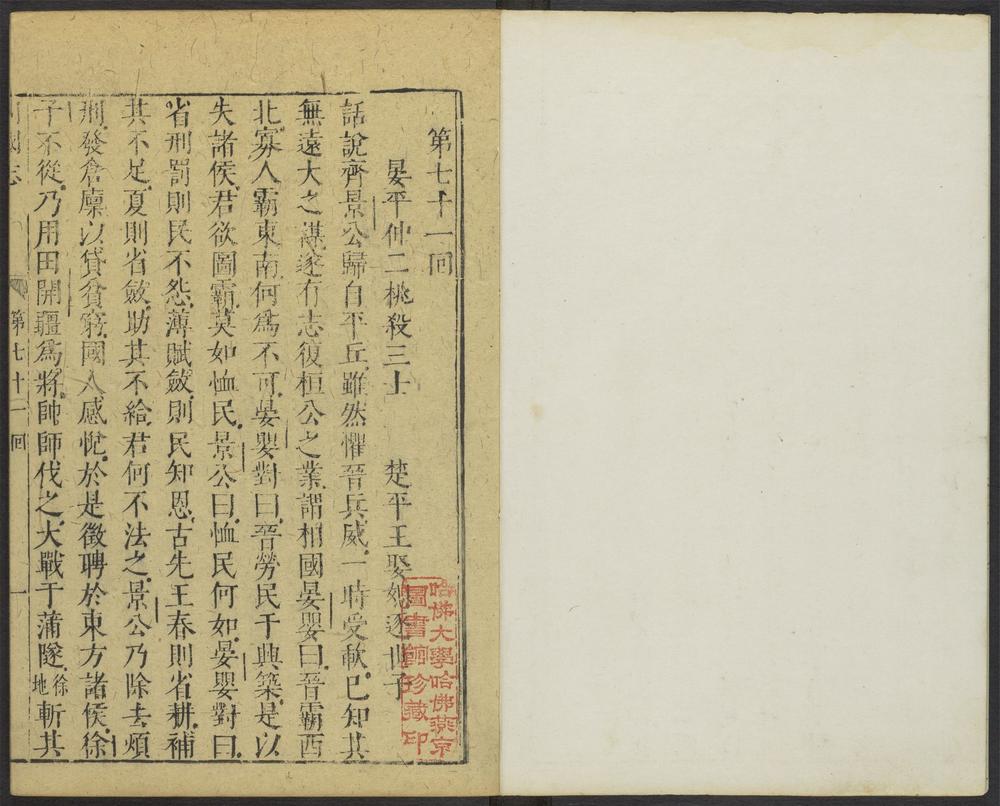 第七十一回
晏平仲二桃殺三士　楚平王娶媳逐世子
話說齊景公歸自平丘雖然懼晉兵威一時受歃已知其
無遠大之謀遂有志復桓公之業謂相國晏嬰曰晉霸西
北寡人霸東南何爲不可晏嬰對曰晉勞民于興築是以
失諸侯君欲圖霸莫如恤民景公曰恤民何如晏嬰對曰
省刑罰則民不怨薄賦斂則民知恩古先王春則省耕補
其不足夏則省斂助其不給君何不法之景公乃除去煩
刑發倉廩以貸貧窮國人感悅於是徵聘於東方諸侯徐
子不從乃用田開疆爲將帥師伐之大戰于蒲隧徐地斬其
列國志　第七十一回　一
哈佛大學哈佛燕京
圖書館珍藏印